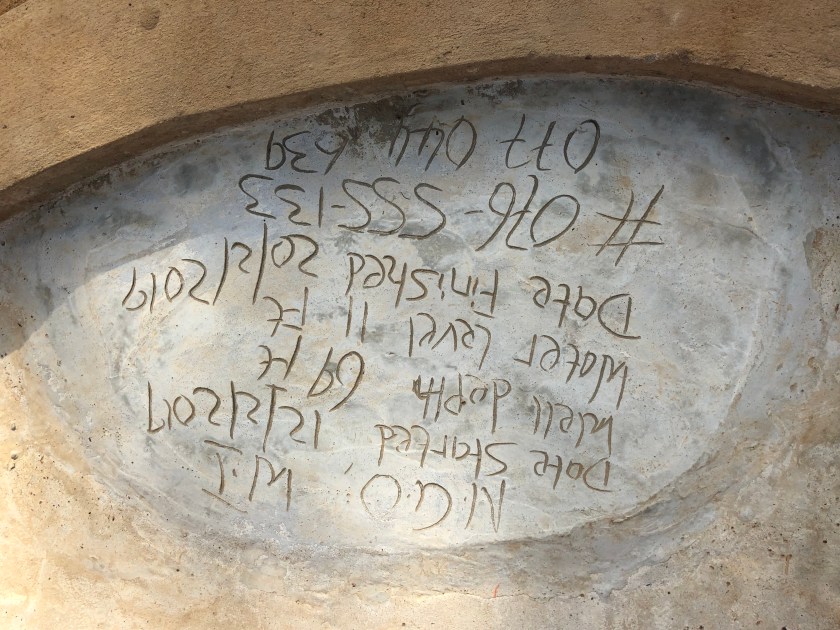 N.G.O, W.I
Date Started 12/2/2019
Well depth 69 Ft
Water Level 11 Ft
Date Finished 20/2/2019
# 076-555-133
077 044 639